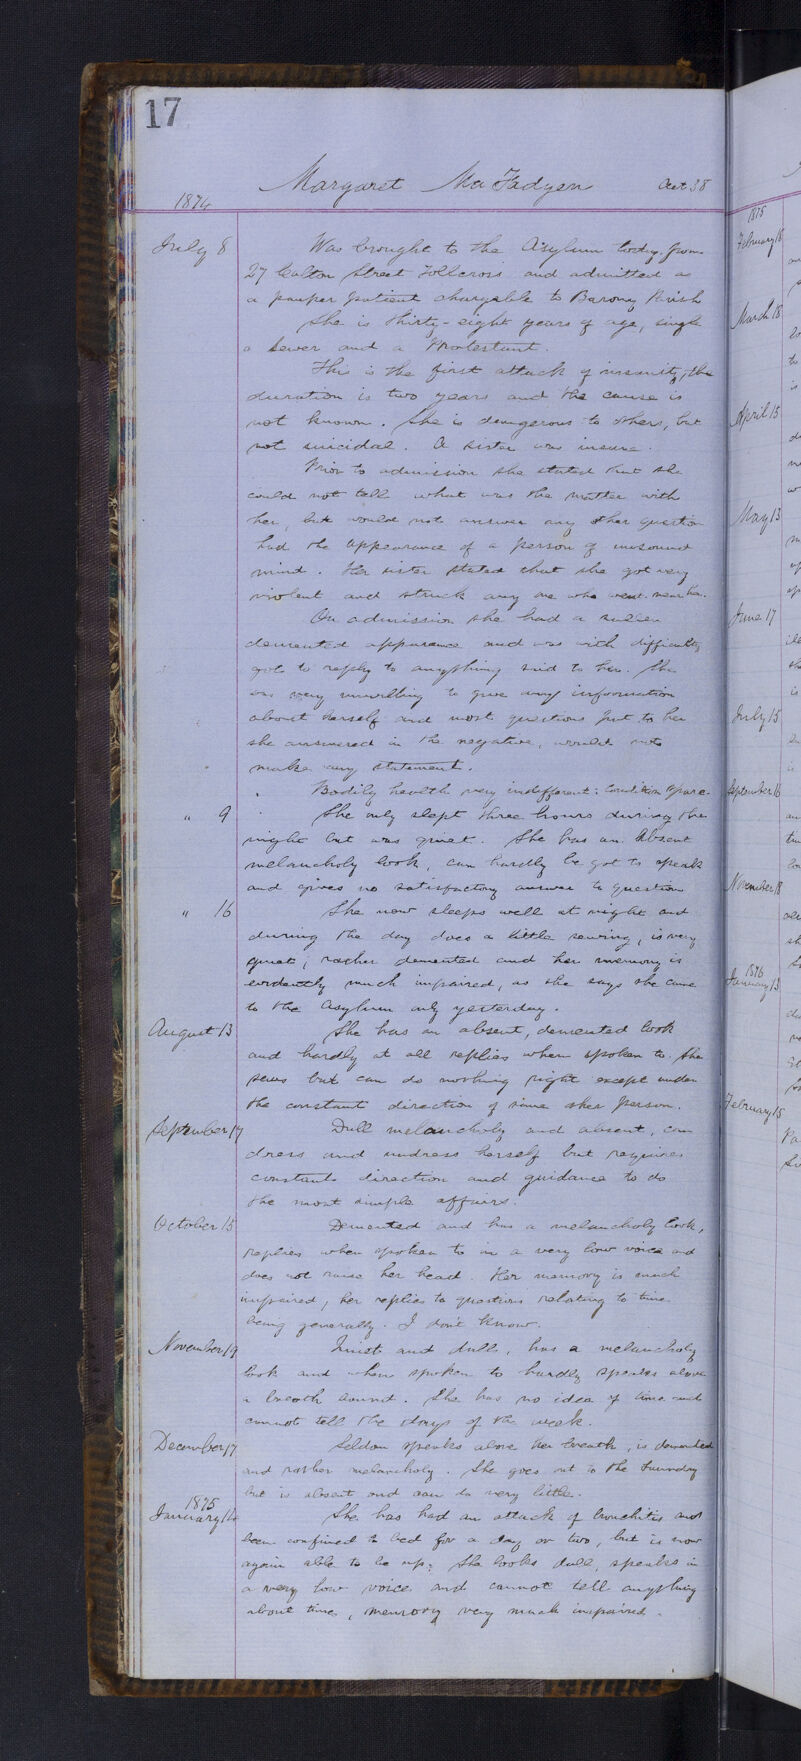 17
Margaret MacFadyen Aet 38
1874
July 8 Was brought to the Asylum today from
27 Carlton Street Tollcross and admitted as
a pauper patient chargeable to Barony Parish
She is thirty-eight years of age, single
a Sewer and a Protestant.
This is the first attack of insanity, the
duration is two years and the cause is
not known. She is dangerous to others, but
not suicidal. A sister was insane.
Prior to admission she stated that she
could not tell what was the matter with
her, but would not answer any other question
had the appearance of a person of unsound
mind. Her sister stated that she got very
violent and struck any one who went near her.
On admission she had a sullen
demented appearance and was with difficulty
got to reply to anything said to her. She
was very unwilling to give any information
about herself and most questions put to her
she answered in the negative, would not
make any statement.
Bodily health very indifferent: Condition spare.
" 9 She only slept three hours during the
night but was quiet. She has an absent
melancholy look, can hardly be got to speak
and gives no satisfactory answer to question
" 16 She now sleeps well at night and
during the day does a little sewing, is very
quiet, rather demented and her memory is
evidently much impaired, as she says she came
to the Asylum only yesterday.
August 13 She has an absent, demented look
and hardly at all replies when spoken to. She
sews but can do nothing right except under
the constant direction of some other person.
September 17 Dull melancholy and absent, can
dress and undress herself but requires
constant direction and guidance to do
the most simple affairs.
October 15 Demented and has a melancholy look,
replies when spoken to in a very low voice and
does not raise her head. Her memory is much
impaired, her replies to questions relating to time
being generally. I don't know.
November 19 Quiet and dull, has a melancholy
look and when spoken to hardly speaks above
a breath sound. She has no idea of time and
cannot tell the days of the week.
December 17 Seldom speaks above her breath, is demented
and rather melancholy. She goes out to the Laundry
but is absent and can do very little.
1875
January 14 She has had an attack of bronchitis and
been confined to bed for a day or two, but is now
again able to be up. She looks dull, speaks in
a very low voice and cannot tell anything
about time, memory very much impaired.
1875
February 18
March 18
April 15
May 13
June 17
July 15
September 16
November 18
1876
January 13
February 15